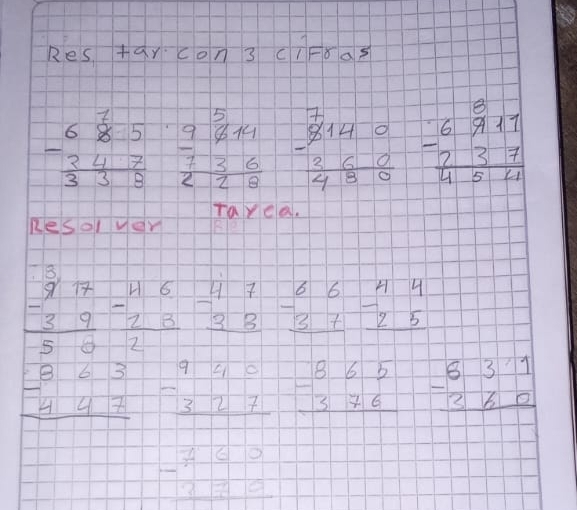 Restar con 3 cifras
7 5 7 8
6 8 5 9 6 14 8 14 0 6 9 11
- 3 4 7 - 7 3 6 - 3 6 0 - 2 3 7
3 3 8 2 2 8 4 8 0 4 5 4
Resolver Tarea.
9 17 4 6 4 7 6 6 4 4
- 3 9 - 2 8 - 3 8 - 3 7 - 2 5
5 8 2
8 6 3 9 4 0 8 6 5 6 3 1
- 4 4 7 - 3 2 7 - 3 7 6 - 3 6 0
- 7 6 0